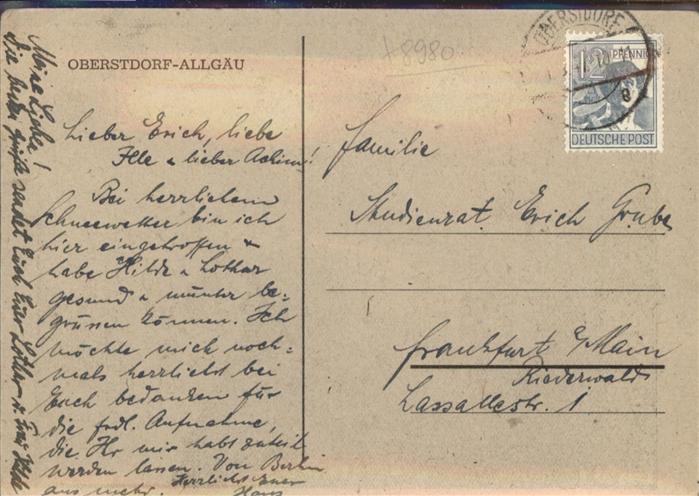 OBERSTDORF-ALLGÄU
+8980
OBERSTDORF
12
PFENNIG
DEUTSCHE POST
Lieber Erich, liebe
Ille u lieber Achim!
Bei herrlichem
Schneewetter bin ich
hier eingetroffen u
habe Hilde u Lothar
gesund u munter be=
grüssen können. Ich
möchte mich noch=
mals herzlichst bei
Euch bedanken für
die frdl. Aufnahme,
die Ihr mir habt zuteil
werden lassen. Von Berlin
aus mehr. Herzlichst Euer
Hans
Meine Lieben!
Die besten Grüße sendet Euch Euer Lothar u. Frau Hilde
Familie
Studienrat Erich Grube
Frankfurt a/Main
Riederwald
Lassallestr. 1